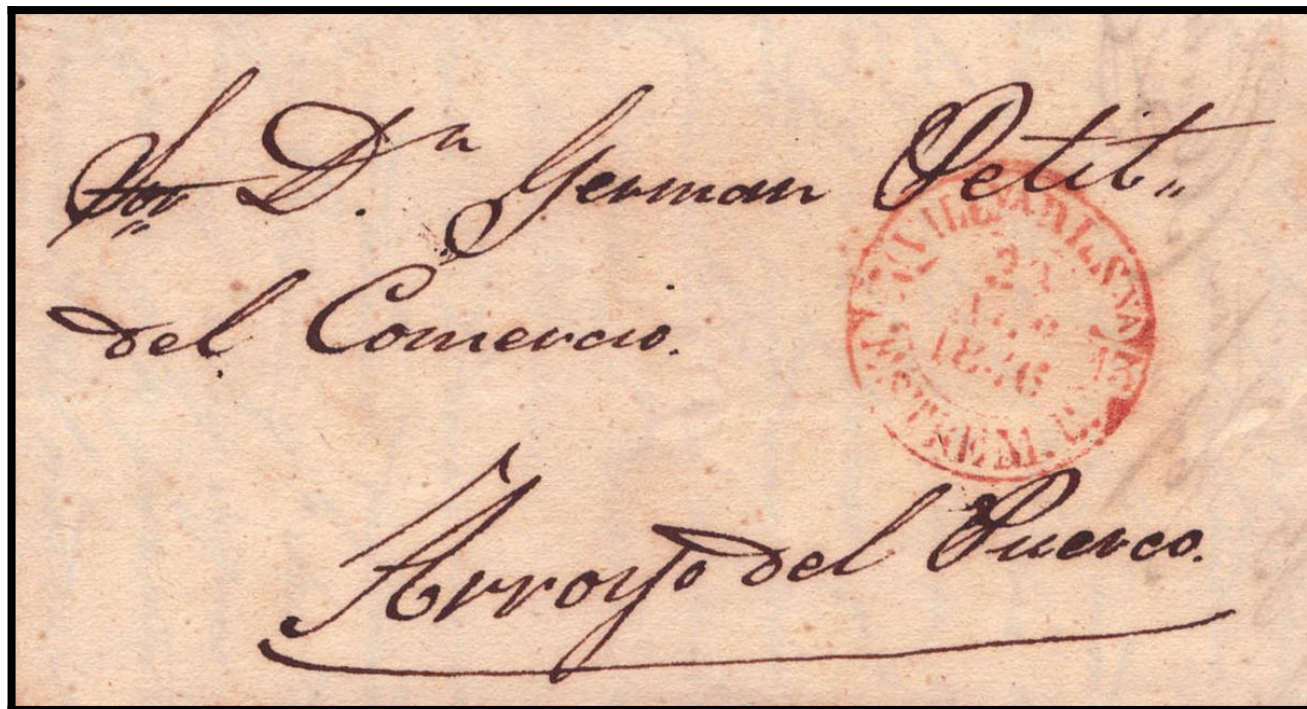 Sor D.n German Petit„
del Comercio.
Arroyo del Puerco.
1846